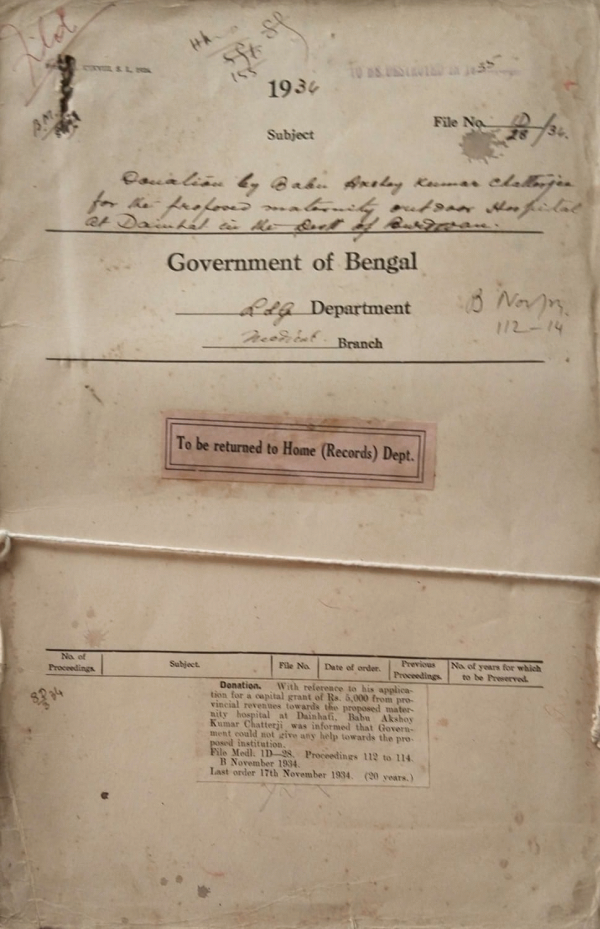 1934
File No. 1D/28/34.
Subject
Donation by Babu Akshoy Kumar Chatterjee
for the proposed maternity outdoor Hospital
at Dainhat in the Dist of Burdwan.
Government of Bengal
Department
B Nov/34
112-14
Medical Branch
To be returned to Home (Records) Dept.
No. of Proceedings. Subject. File No. Date of order. Previous Proceedings. No. of years for which to be Preserved.
Donation. With reference to his applica-
tion for a capital grant of Rs. 5,000 from pro-
vincial revenues towards the proposed mater-
nity hospital at Dainhati, Babu Akshoy
Kumar Chatterji was informed that Govern-
ment could not give any help towards the pro-
posed institution.
File Medl. 1D—28. Proceedings 112 to 114.
B November 1934.
Last order 17th November 1934. (20 years.)